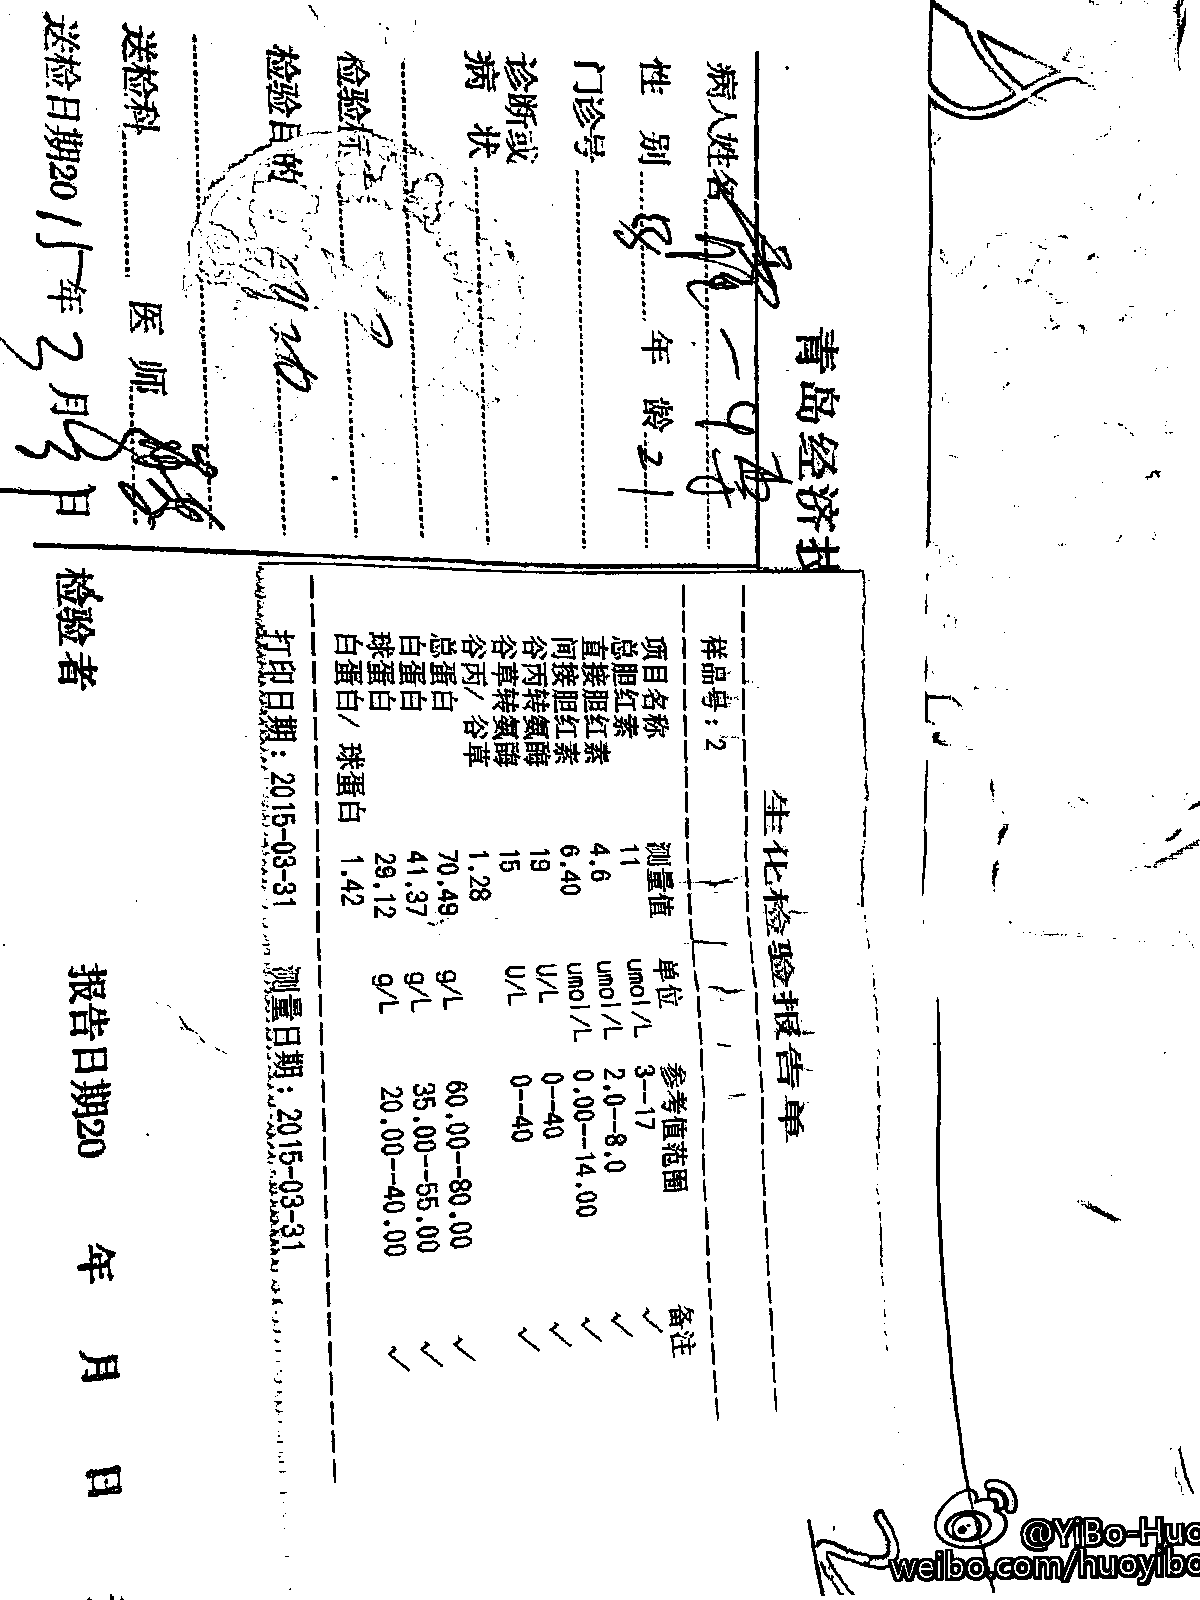 青岛经济技
病人姓名
性 别 年 龄 21
门诊号
诊断或
病 状
检验标
检验目的
送检科 医 师
送检日期2015年3月31日
生化检验报告单
样品号:2
项目名称 测量值 单位 参考值范围 备注
总胆红素 11 umol/L 3--17 ✓
直接胆红素 4.6 umol/L 2.0--8.0 ✓
间接胆红素 6.40 umol/L 0.00--14.00 ✓
谷丙转氨酶 19 U/L 0--40 ✓
谷草转氨酶 15 U/L 0--40 ✓
谷丙/ 谷草 1.28
总蛋白 70.49 g/L 60.00--80.00 ✓
白蛋白 41.37 g/L 35.00--55.00 ✓
球蛋白 29.12 g/L 20.00--40.00 ✓
白蛋白/ 球蛋白 1.42
打印日期:2015-03-31 测量日期:2015-03-31
检验者 报告日期20 年 月 日
@YiBo-Huo
weibo.com/huoyibo